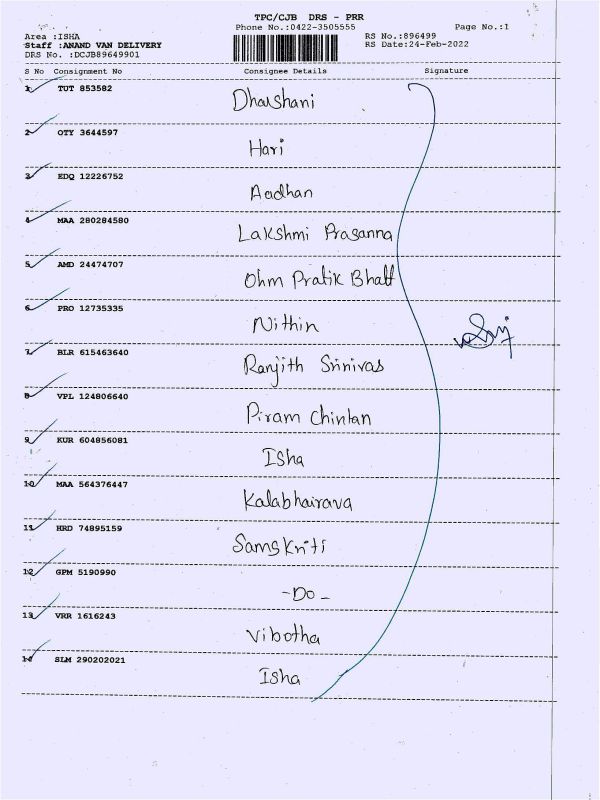 TPC/CJB DRS - PRR
Phone No.:0422-3505555
Page No.:1
Area :ISHA
RS No.:896499
Staff :ANAND VAN DELIVERY
RS Date:24-Feb-2022
DRS No. :DCJB89649901
S No Consignment No Consignee Details Signature
1 TUT 853582 Dharshani
2 OTY 3644597 Hari
3 EDQ 12226752 Aadhan
4 MAA 280284580 Lakshmi Prasanna
5 AMD 24474707 Ohm Pratik Bhatt
6 PRO 12735335 Nithin
7 BLR 615463640 Ranjith Srinivas
8 VPL 124806640 Piram Chintan
9 KUR 604856081 Isha
10 MAA 564376447 Kalabhairava
11 HRD 74895159 Samskriti
12 GPM 5190990 -Do-
13 VRR 1616243 Vibotha
14 SLM 290202021 Isha